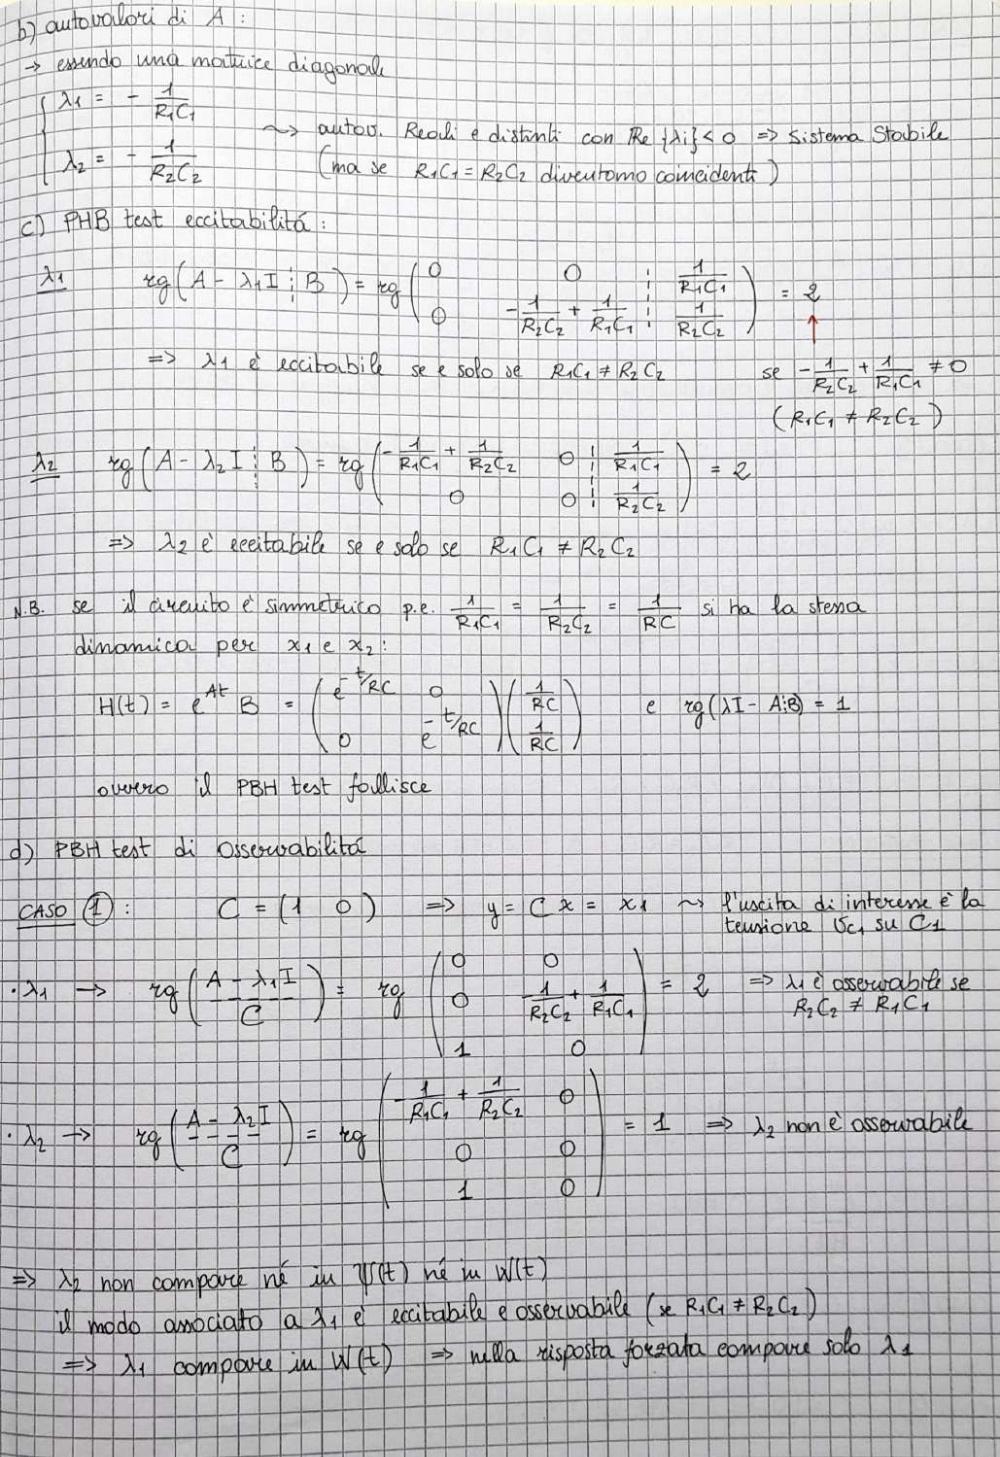 b) autovalori di A :
→ essendo una matrice diagonale
λ1 = - 1/R1C1
λ2 = - 1/R2C2
~> autov. Reali e distinti con Re{λi}<0 => Sistema Stabile
(ma se R1C1 = R2C2 diventano coincidenti)
c) PHB test eccitabilitá :
λ1 rg(A - λ1I ¦ B) = rg( 0 0 ¦ 1/R1C1 ; 0 -1/R2C2 + 1/R1C1 ¦ 1/R2C2 ) = 2
↑
=> λ1 è eccitabile se e solo se R1C1 ≠ R2C2
se -1/R2C2 + 1/R1C1 ≠ 0
(R1C1 ≠ R2C2)
λ2 rg(A - λ2I ¦ B) = rg( -1/R1C1 + 1/R2C2 0 ¦ 1/R1C1 ; 0 0 ¦ 1/R2C2 ) = 2
=> λ2 è eccitabile se e solo se R1C1 ≠ R2C2
N.B. se il circuito è simmetrico p.e. 1/R1C1 = 1/R2C2 = 1/RC si ha la stessa
dinamica per x1 e x2 :
H(t) = e^At B = ( e^-t/RC 0 ; 0 e^-t/RC )( 1/RC ; 1/RC ) e rg(λI - A¦B) = 1
ovvero il PBH test fallisce
d) PBH test di osservabilitá
CASO 1 : C = (1 0) => y = Cx = x1 ~> l'uscita di interesse è la
tensione Vc1 su C1
· λ1 → rg( A - λ1I ; C ) = rg( 0 0 ; 0 -1/R2C2 + 1/R1C1 ; 1 0 ) = 2 => λ1 è osservabile se
R2C2 ≠ R1C1
· λ2 → rg( A - λ2I ; C ) = rg( -1/R1C1 + 1/R2C2 0 ; 0 0 ; 1 0 ) = 1 => λ2 non è osservabile
=> λ2 non compare né in Ψ(t) né in W(t)
il modo associato a λ1 è eccitabile e osservabile (se R1C1 ≠ R2C2)
=> λ1 compare in W(t) => nella risposta forzata compare solo λ1